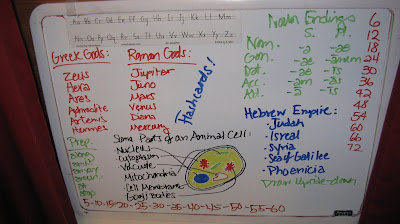 Aa Bb Cc Dd Ee Ff Gg Hh Ii Jj Kk Ll Mm
Nn Oo Pp Qq Rr Ss Tt Uu Vv Ww Xx Yy Zz
Greek Gods:
Zeus
Hera
Ares
Aphrodite
Artemis
Hermes
Roman Gods:
Jupiter
Juno
Mars
Venus
Diana
Mercury
Flashcards!
Noun Endings
S. Pl.
Nom. -a -ae
Gen. -ae -arum
Dat. -ae -īs
Acc. -am -ās
Abl. -ā -īs
6
12
18
24
30
36
42
48
54
60
66
72
Hebrew Empire:
• Judah
• Isreal
• Syria
• Sea of Galilee
• Phoenicia
Draw Upside-down
Prep.
Some Parts of an Animal Cell:
Nucleus
Cytoplasm
Vacuole
Mitochondria
Cell Membrane
Golgi Bodies
5-10-15-20-25-30-35-40-45-50-55-60